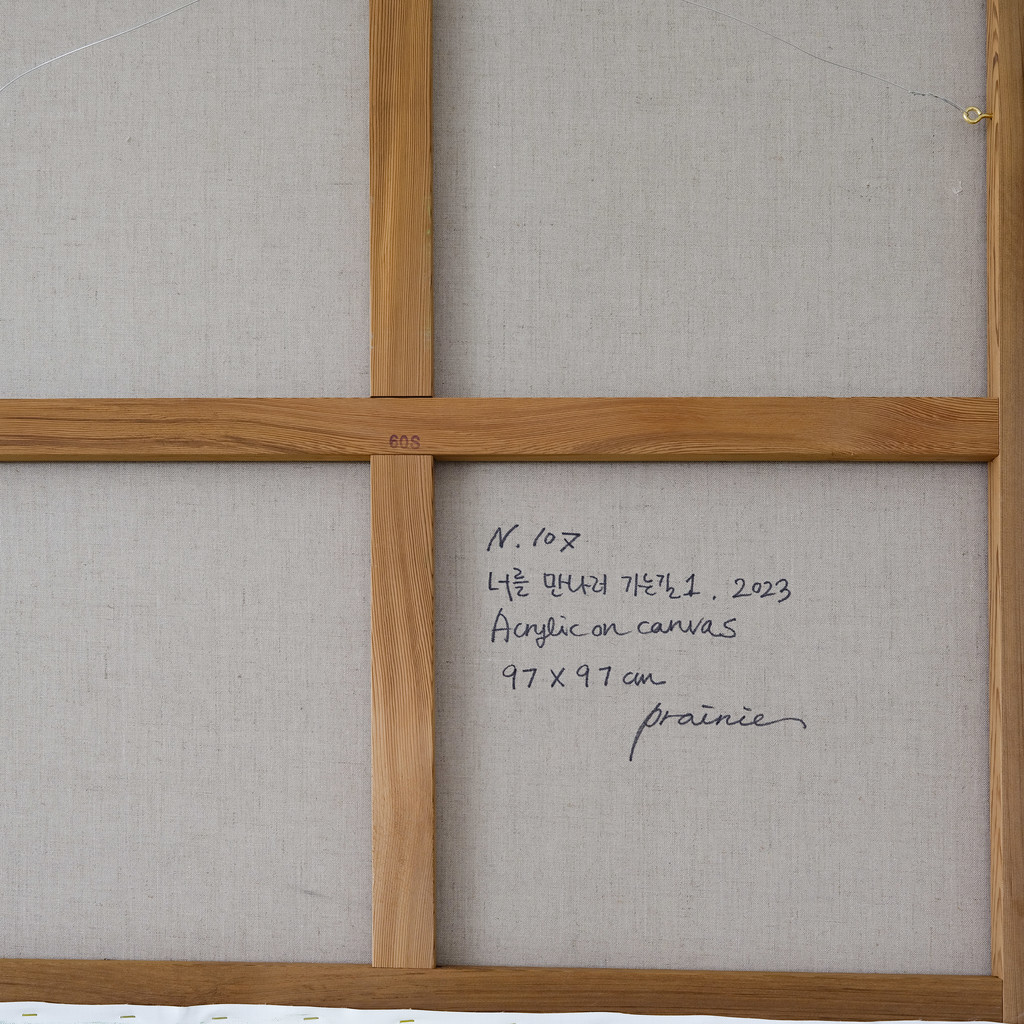 60S
N. 107
너를 만나러 가는길 1. 2023
Acrylic on canvas
97 x 97 cm
prainie